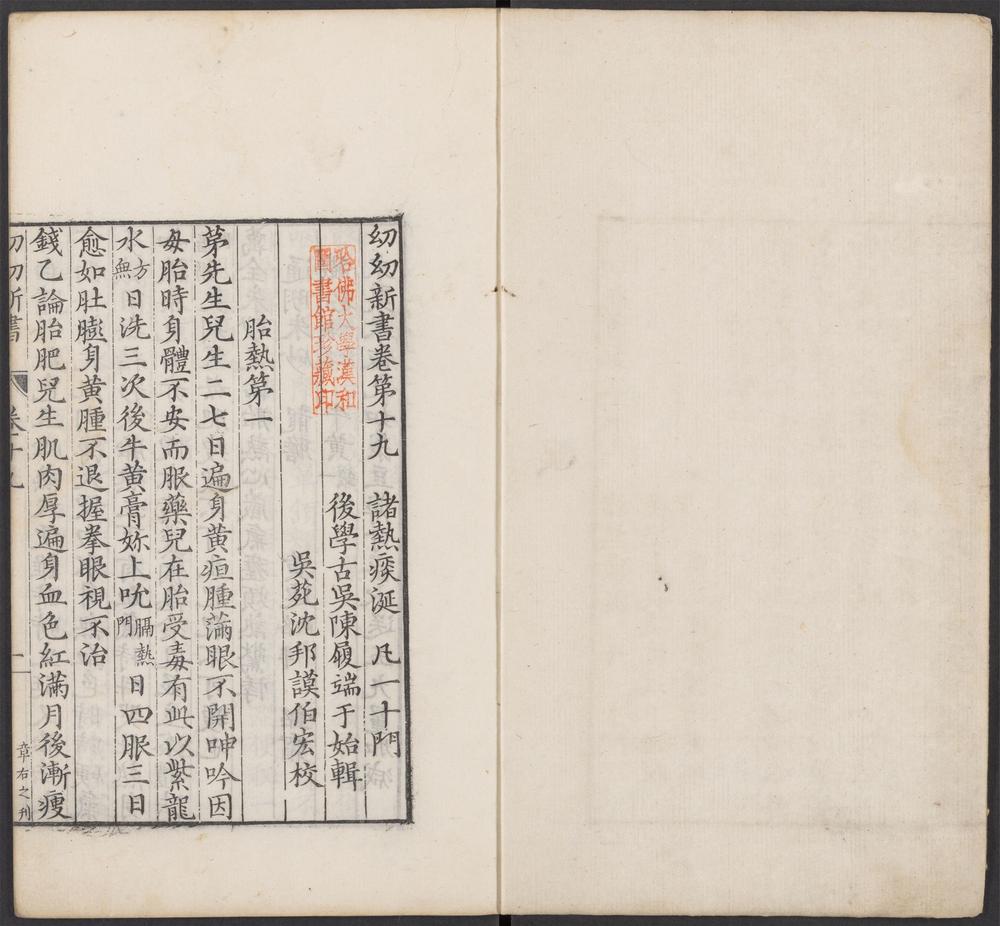 幼幼新書卷第十九 諸熱痰涎 凡一十門
後學古吳陳履端于始輯
吳苑沈邦謨伯宏校
哈佛大學漢和
圖書館珍藏印
胎熱第一
茅先生兒生二七日遍身黃疸腫滿眼不開呻吟因
母胎時身體不安而服藥兒在胎受毒有此以紫龍
水方無日洗三次後牛黃膏妳上吮膈熱門日四服三日
愈如肚膨身黃腫不退握拳眼視不治
錢乙論胎肥兒生肌肉厚遍身血色紅滿月後漸瘦
幼幼新書 卷十九 一 章右之刊